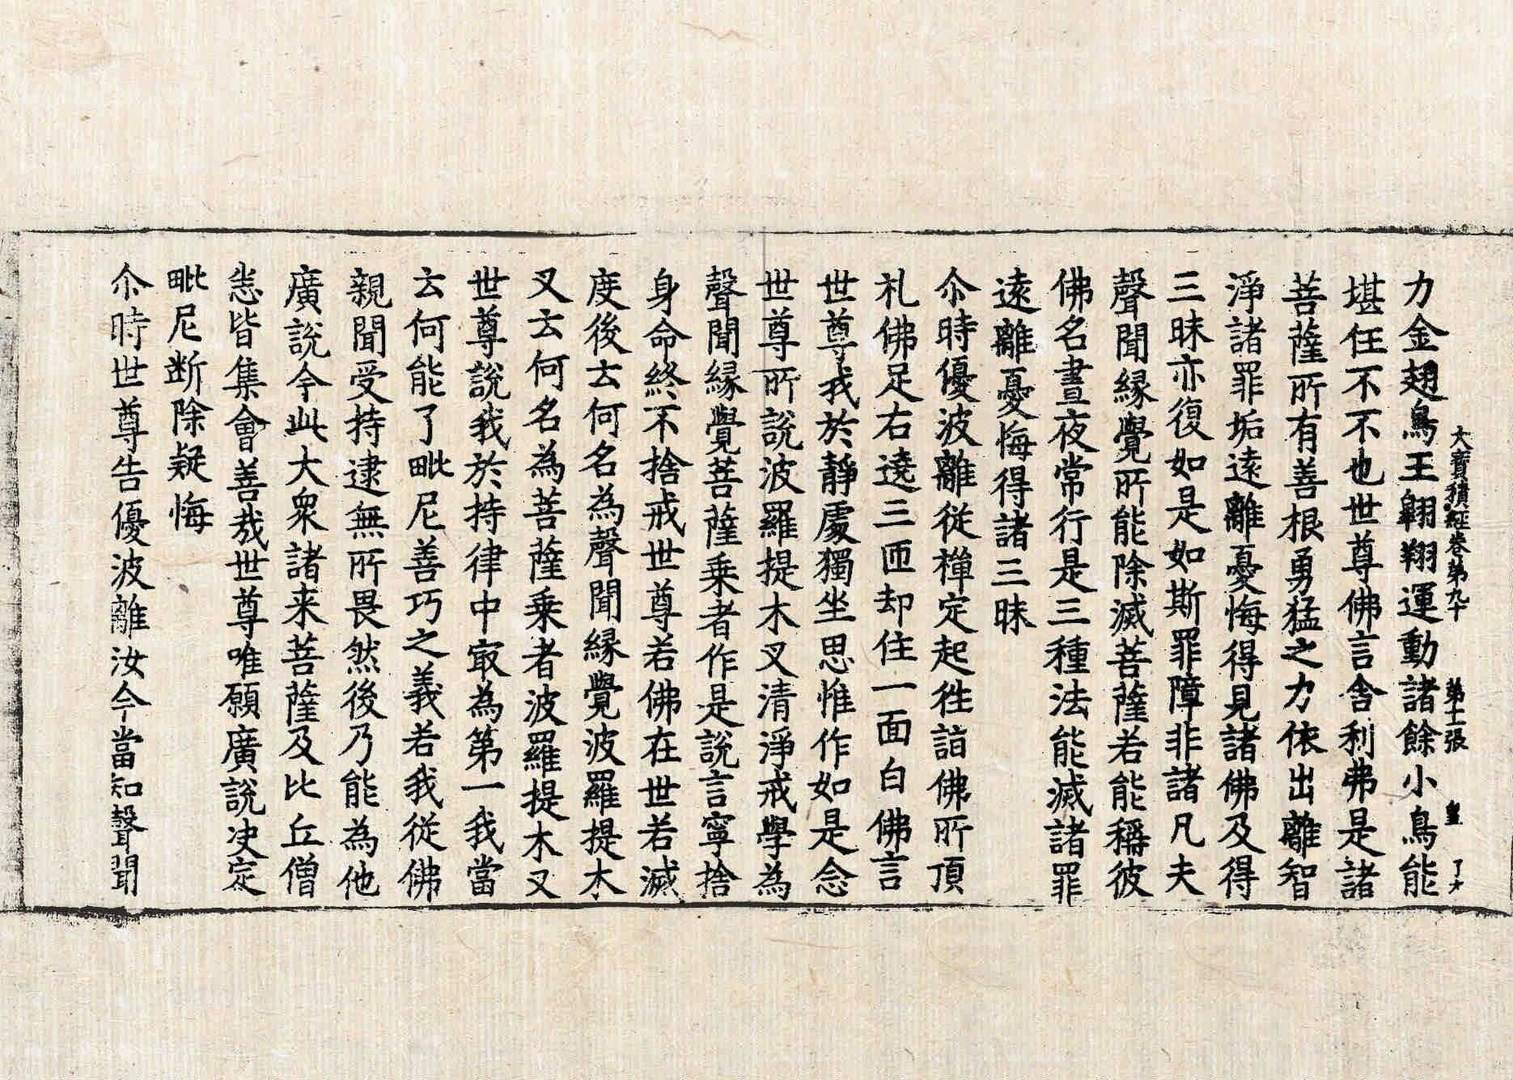 大寶積經卷第九十 第十一張
力金翅鳥王翱翔運動諸餘小鳥能
堪任不不也世尊佛言舍利弗是諸
菩薩所有善根勇猛之力依出離智
淨諸罪垢遠離憂悔得見諸佛及得
三昧亦復如是如斯罪障非諸凡夫
聲聞緣覺所能除滅菩薩若能稱彼
佛名晝夜常行是三種法能滅諸罪
遠離憂悔得諸三昧
尒時優波離從禪定起往詣佛所頂
礼佛足右遶三匝却住一面白佛言
世尊我於靜處獨坐思惟作如是念
世尊所說波羅提木叉清淨戒學為
聲聞緣覺菩薩乘者作是說言寧捨
身命終不捨戒世尊若佛在世若滅
度後云何名為聲聞緣覺波羅提木
叉云何名為菩薩乘者波羅提木叉
世尊說我於持律中冣為第一我當
云何能了毗尼善巧之義若我從佛
親聞受持逮無所畏然後乃能為他
廣說今此大衆諸来菩薩及比丘僧
悉皆集會善哉世尊唯願廣說决定
毗尼断除疑悔
尒時世尊告優波離汝今當知聲聞